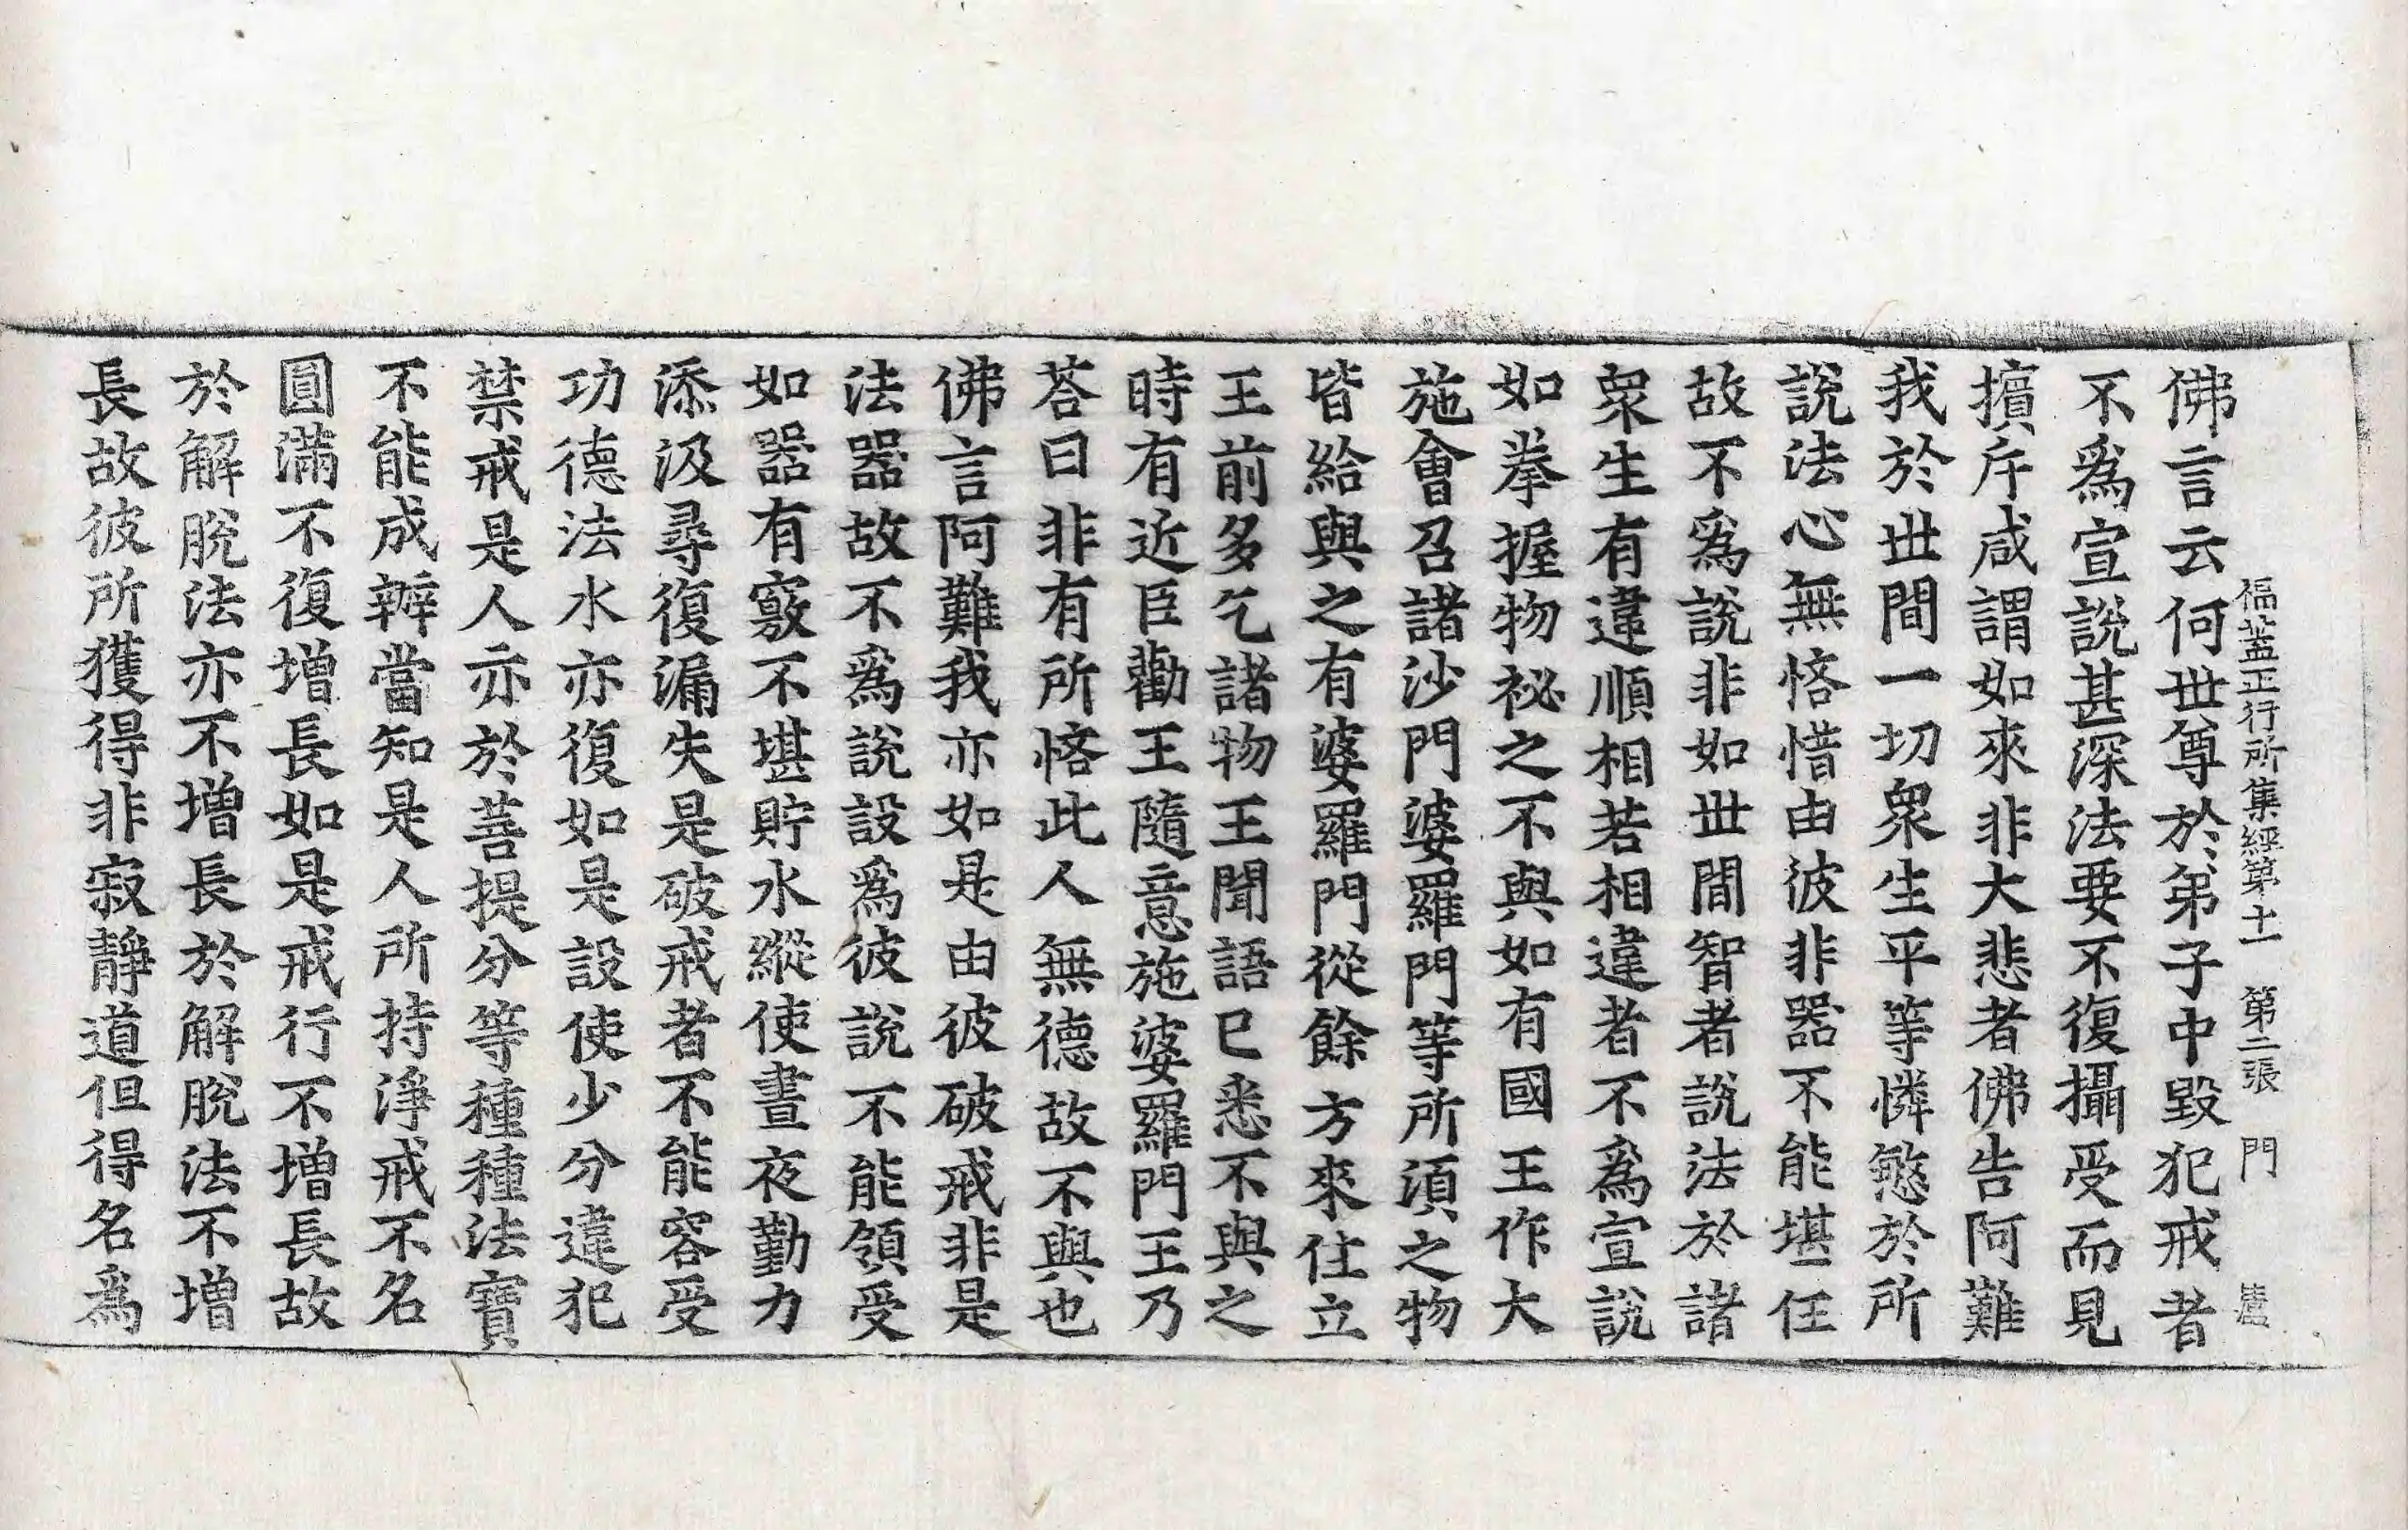 福蓋正行所集經第十一　第二張　門
佛言云何世尊於弟子中毀犯戒者
不爲宣說甚深法要不復攝受而見
擯斥咸謂如來非大悲者佛告阿難
我於世間一切衆生平等憐愍於所
說法心無悋惜由彼非器不能堪任
故不爲說非如世間智者說法於諸
衆生有違順相若相違者不爲宣說
如拳握物祕之不與如有國王作大
施會召諸沙門婆羅門等所須之物
皆給與之有婆羅門從餘方來住立
王前多乞諸物王聞語已悉不與之
時有近臣勸王隨意施婆羅門王乃
荅曰非有所悋此人無德故不與也
佛言阿難我亦如是由彼破戒非是
法器故不爲說設爲彼說不能領受
如器有竅不堪貯水縱使晝夜勤力
添汲尋復漏失是破戒者不能容受
功德法水亦復如是設使少分違犯
禁戒是人亦於菩提分等種種法寶
不能成辦當知是人所持淨戒不名
圓滿不復增長如是戒行不增長故
於解脫法亦不增長於解脫法不增
長故彼所獲得非寂靜道但得名爲